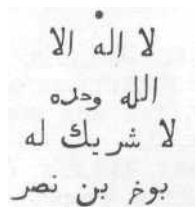 لا اله الا
الله وحده
لا شريك له
بوخ بن نصر